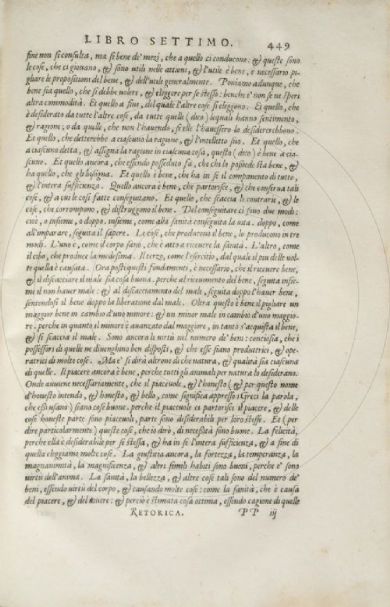 LIBRO SETTIMO. 449
fine non si consulta, ma sì bene de' mezi, che a quello ci conducono: & queste sono
le cose, che ci giovano, & sono utili nelle attioni, & l'utile è bene, è necessario pi-
gliare le propositioni del bene, & dell'utile generalmente. Poniamo adunque, che
bene sia quello, che si debbe volere, & eleggere per se stesso: benche è non se ne speri
altra commodità. Et quello a fine, del quale l'altre cose si eleggono. Et quello, che
è desiderato da tutte l'altre cose, da tutte quelle (dico) lequali hanno sentimento,
& ragione; o da quelle, che non l'hauendo, se elle l'hauessero lo desidererebbono.
Et quello, che detterebbe a ciascuno la ragione, & l'intelletto suo. Et quello, che
a ciascuno detta, & assegna la ragione in ciascuna cosa, questo (dico) è bene a cia-
scuno. Et quello ancora, che essendo posseduto fa, che chi lo possiede sta bene, &
ha quello, che gli bisogna. Et quello è bene, che ha in se il compimento di tutto,
& l'intera sufficienza. Quello ancora è bene, che partorisce, & che conserva tali
cose, & a cui le cose fatte conseguitano. Et quello, che scaccia le contrarie, & le
cose, che corrompono, & distruggono il bene. Del conseguitare ci sono due modi:
cioè, o insieme, o doppo. insieme, come alla sanità conseguita la vita. doppo, come
all'imparare, seguita il sapere. Le cose, che producono il bene, lo producono in tre
modi. L'uno è, come il corpo sano, che è atto a ricevere la sanità. L'altro, come
il cibo, che produce la medesima. Il terzo, come l'esercitio, dal quale il piu delle vol-
te quella è causata. Ora posto questi fondamenti, è necessario, che il ricevere bene,
& il discacciare il male sia cosa buona. perche al ricevimento del bene, seguita insie-
me il non hauer male: & al discacciamento del male, seguita doppo l'hauer bene,
sentendosi il bene doppo la liberatione dal male. Oltra questo è bene il pigliare un
maggior bene in cambio d'uno minore: & un minor male in cambio d'uno maggio-
re. perche in quanto il minore è avanzato dal maggiore, in tanto s'acquista il bene,
& si scaccia il male. Sono ancora le virtù nel numero de' beni: conciosia, che i
possessori di quelle ne divenghino ben disposti, & che esse siano produttrici, & ope-
ratrici di molte cose. Ma e' si dirà altrove di che natura, & qualità sia ciascuna
di quelle. Il piacere ancora è bene, perche tutti gli animali per natura lo desiderano.
Onde auuiene necessariamente, che il piacevole, & l'honesto (& per questo nome
d'honesto intendo, & honesto, & bello, come significa appresso i Greci la parola,
che essi usano) siano cose buone. perche il piacevole ci partorisce il piacere, & delle
cose honeste parte sono piacevoli, parte sono desiderabili per loro stesse. Et (per
dire particolarmente) queste cose, che io dirò, di necessità sono buone. La felicità,
perche ella è desiderabile per se stessa, & ha in se l'intera sufficienza, & a fine di
quella eleggiamo molte cose. La giustitia ancora, la fortezza, la temperanza, la
magnanimità, la magnificenza, & altri simili habiti sono buoni, perche e' sono
virtù dell'anima. La sanità, la bellezza, & altre cose tali sono del numero de'
beni, essendo virtù del corpo, & causando molte cose: come la sanità, che è causa
del piacere, & del vivere: & perciò è stimata cosa ottima, essendo cagione di quelle
RETORICA. PP iij